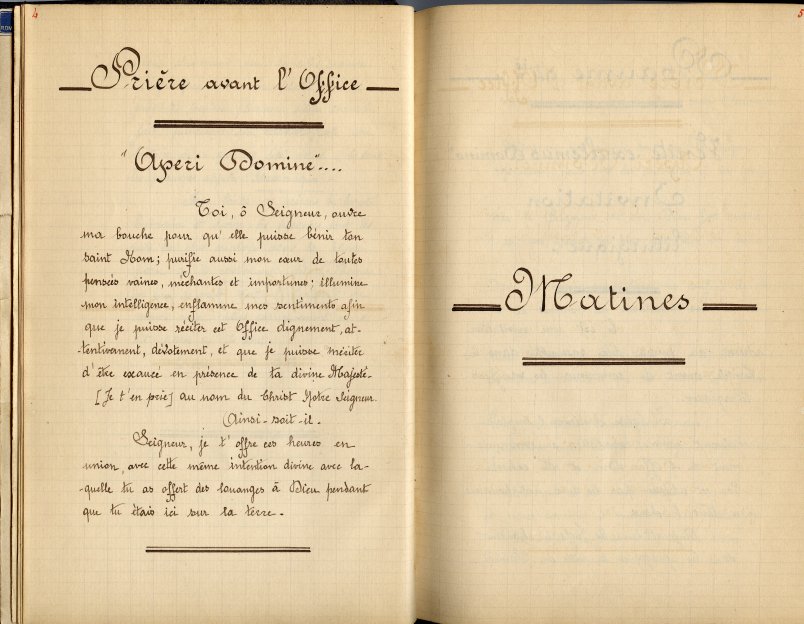 4
Prière avant l'Office
"Aperi Domine"....
Toi, ô Seigneur, ouvre
ma bouche pour qu'elle puisse bénir ton
saint Nom; purifie aussi mon cœur de toutes
pensées vaines, méchantes et importunes; illumine
mon intelligence, enflamme mes sentiments afin
que je puisse réciter cet Office dignement, at-
-tentivement, dévotement, et que je puisse mériter
d'être exaucé en présence de ta divine Majesté.
[Je t'en prie] au nom du Christ Notre Seigneur.
Ainsi-soit-il.
Seigneur, je t'offre ces heures en
union, avec cette même intention divine avec la-
-quelle tu as offert des louanges à Dieu pendant
que tu étais ici sur la terre.
5
Matines